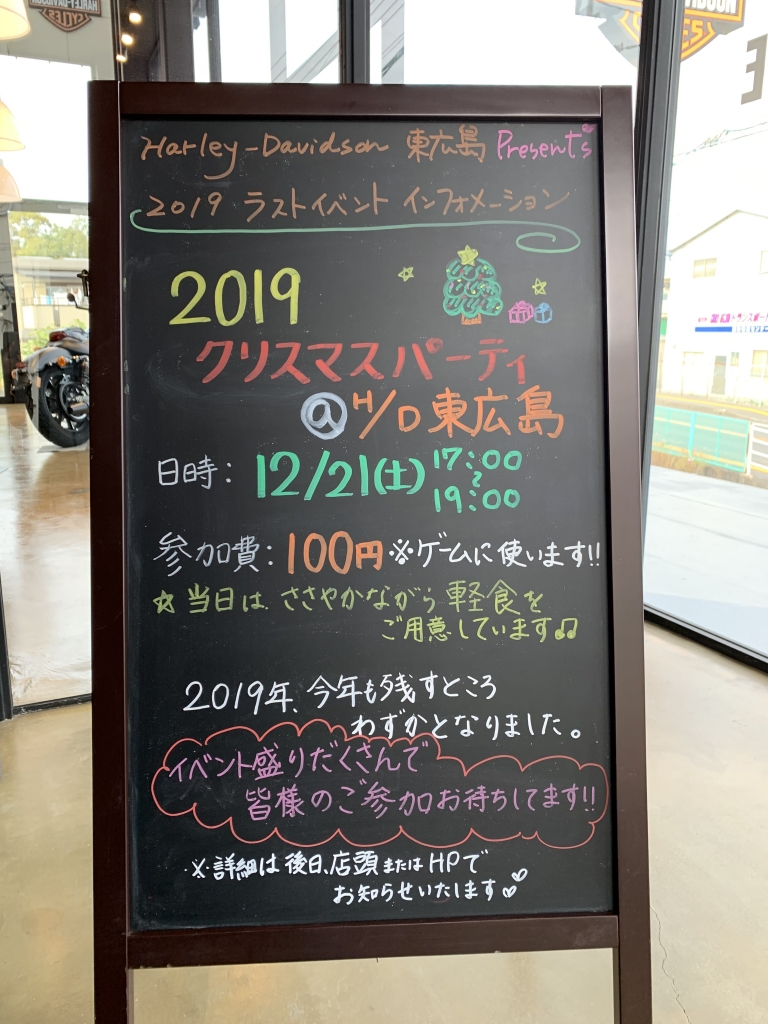 Harley-Davidson 東広島 Present's
2019 ラストイベント インフォメーション
2019
クリスマスパーティ
@H/D東広島
日時: 12/21(土) 17:00
~
19:00
参加費: 100円 ※ゲームに使います!!
☆当日は、ささやかながら軽食を
ご用意しています♫
2019年、今年も残すところ
わずかとなりました。
イベント盛りだくさんで
皆様のご参加お待ちしてます!!
※詳細は後日、店頭またはHPで
お知らせいたします♡